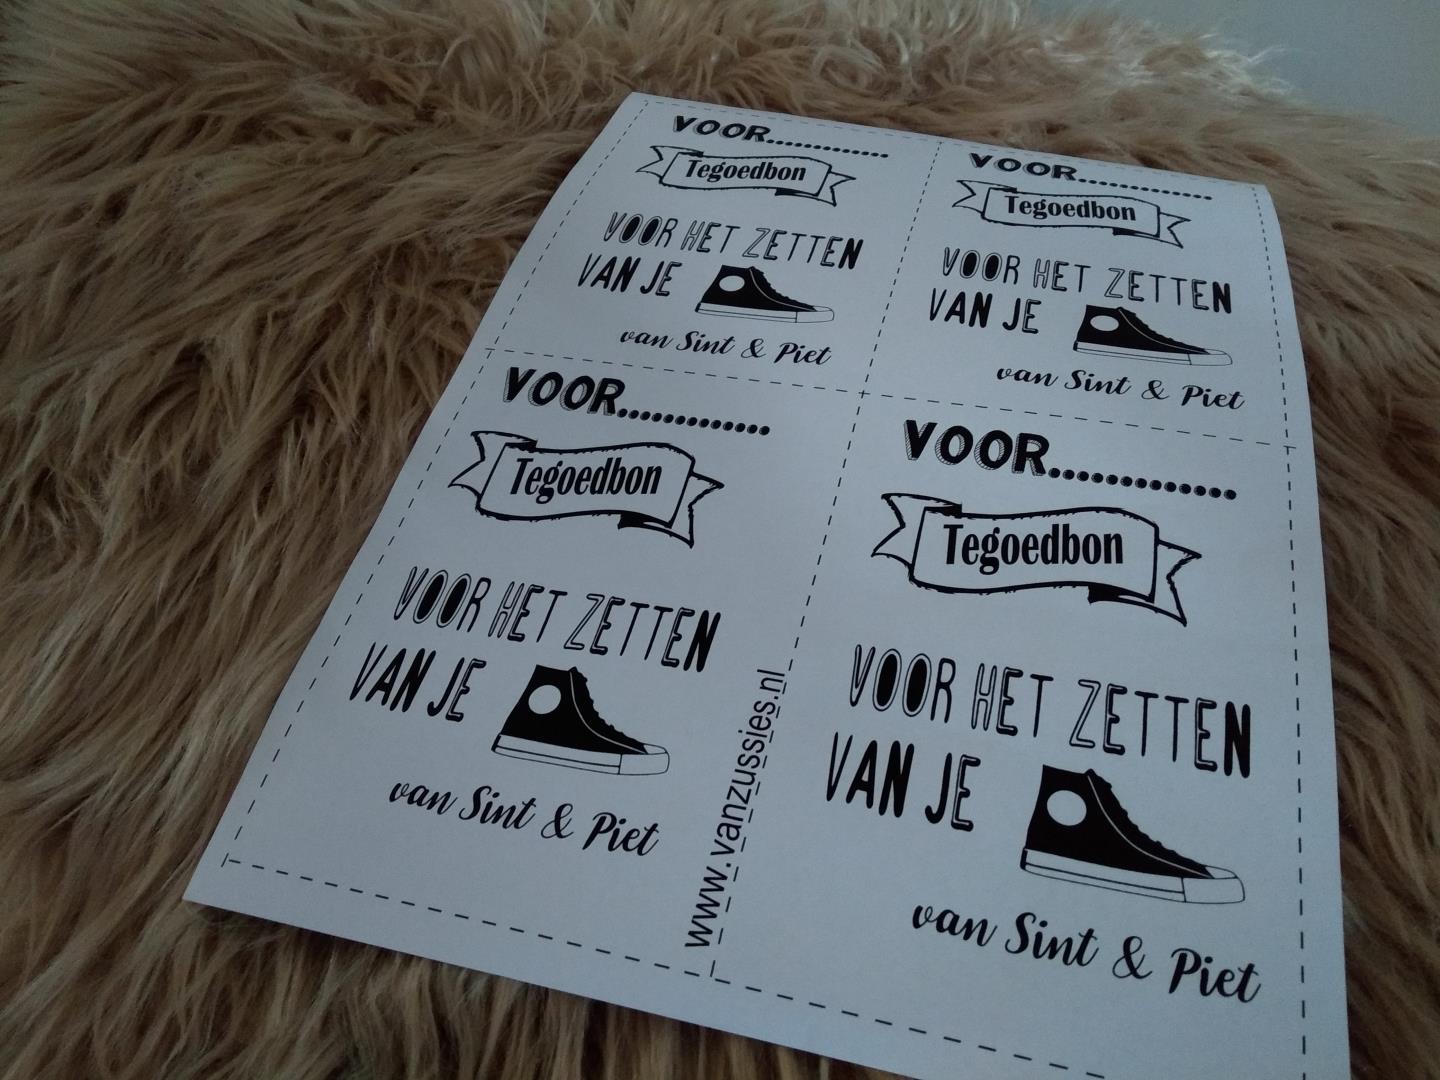 VOOR.............
Tegoedbon
VOOR HET ZETTEN
VAN JE
van Sint & Piet
VOOR.............
Tegoedbon
VOOR HET ZETTEN
VAN JE
van Sint & Piet
VOOR.............
Tegoedbon
VOOR HET ZETTEN
VAN JE
van Sint & Piet
VOOR.............
Tegoedbon
VOOR HET ZETTEN
VAN JE
van Sint & Piet
www.vanzussies.nl